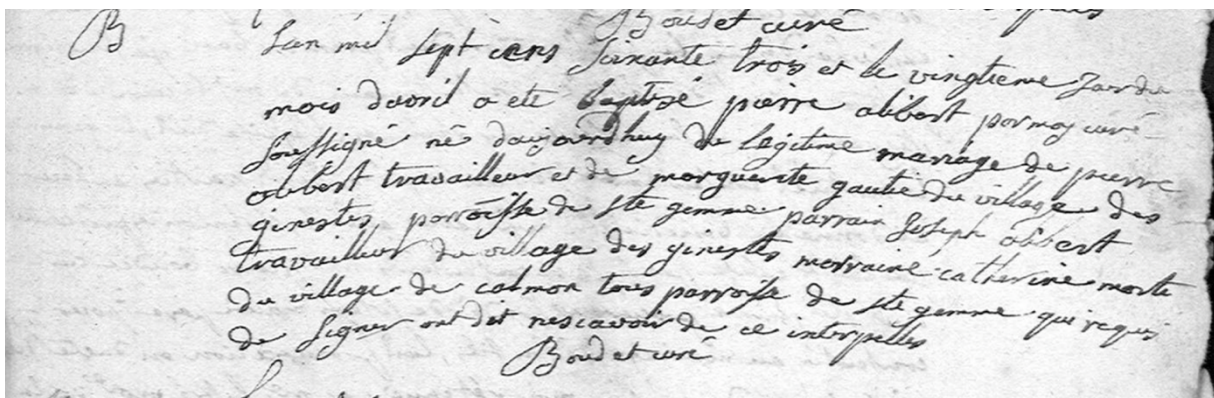 Boudet curé
B
Lan mil sept cens soixante trois et le vingtieme Jour du
mois davril a eté baptisé pierre alibert par moy curé
soussigné né daujourdhuy du legitime mariage de pierre
alibert travailleur et de marguerite gautié du village des
ginestes parroisse de ste gemme parrain Joseph alibert
travailleur du village des ginestes marraine catherine
du village de calmon tous parroisse de ste gemme qui requis
de signer ont dit nescavoir de ce interpellés
Boudet curé